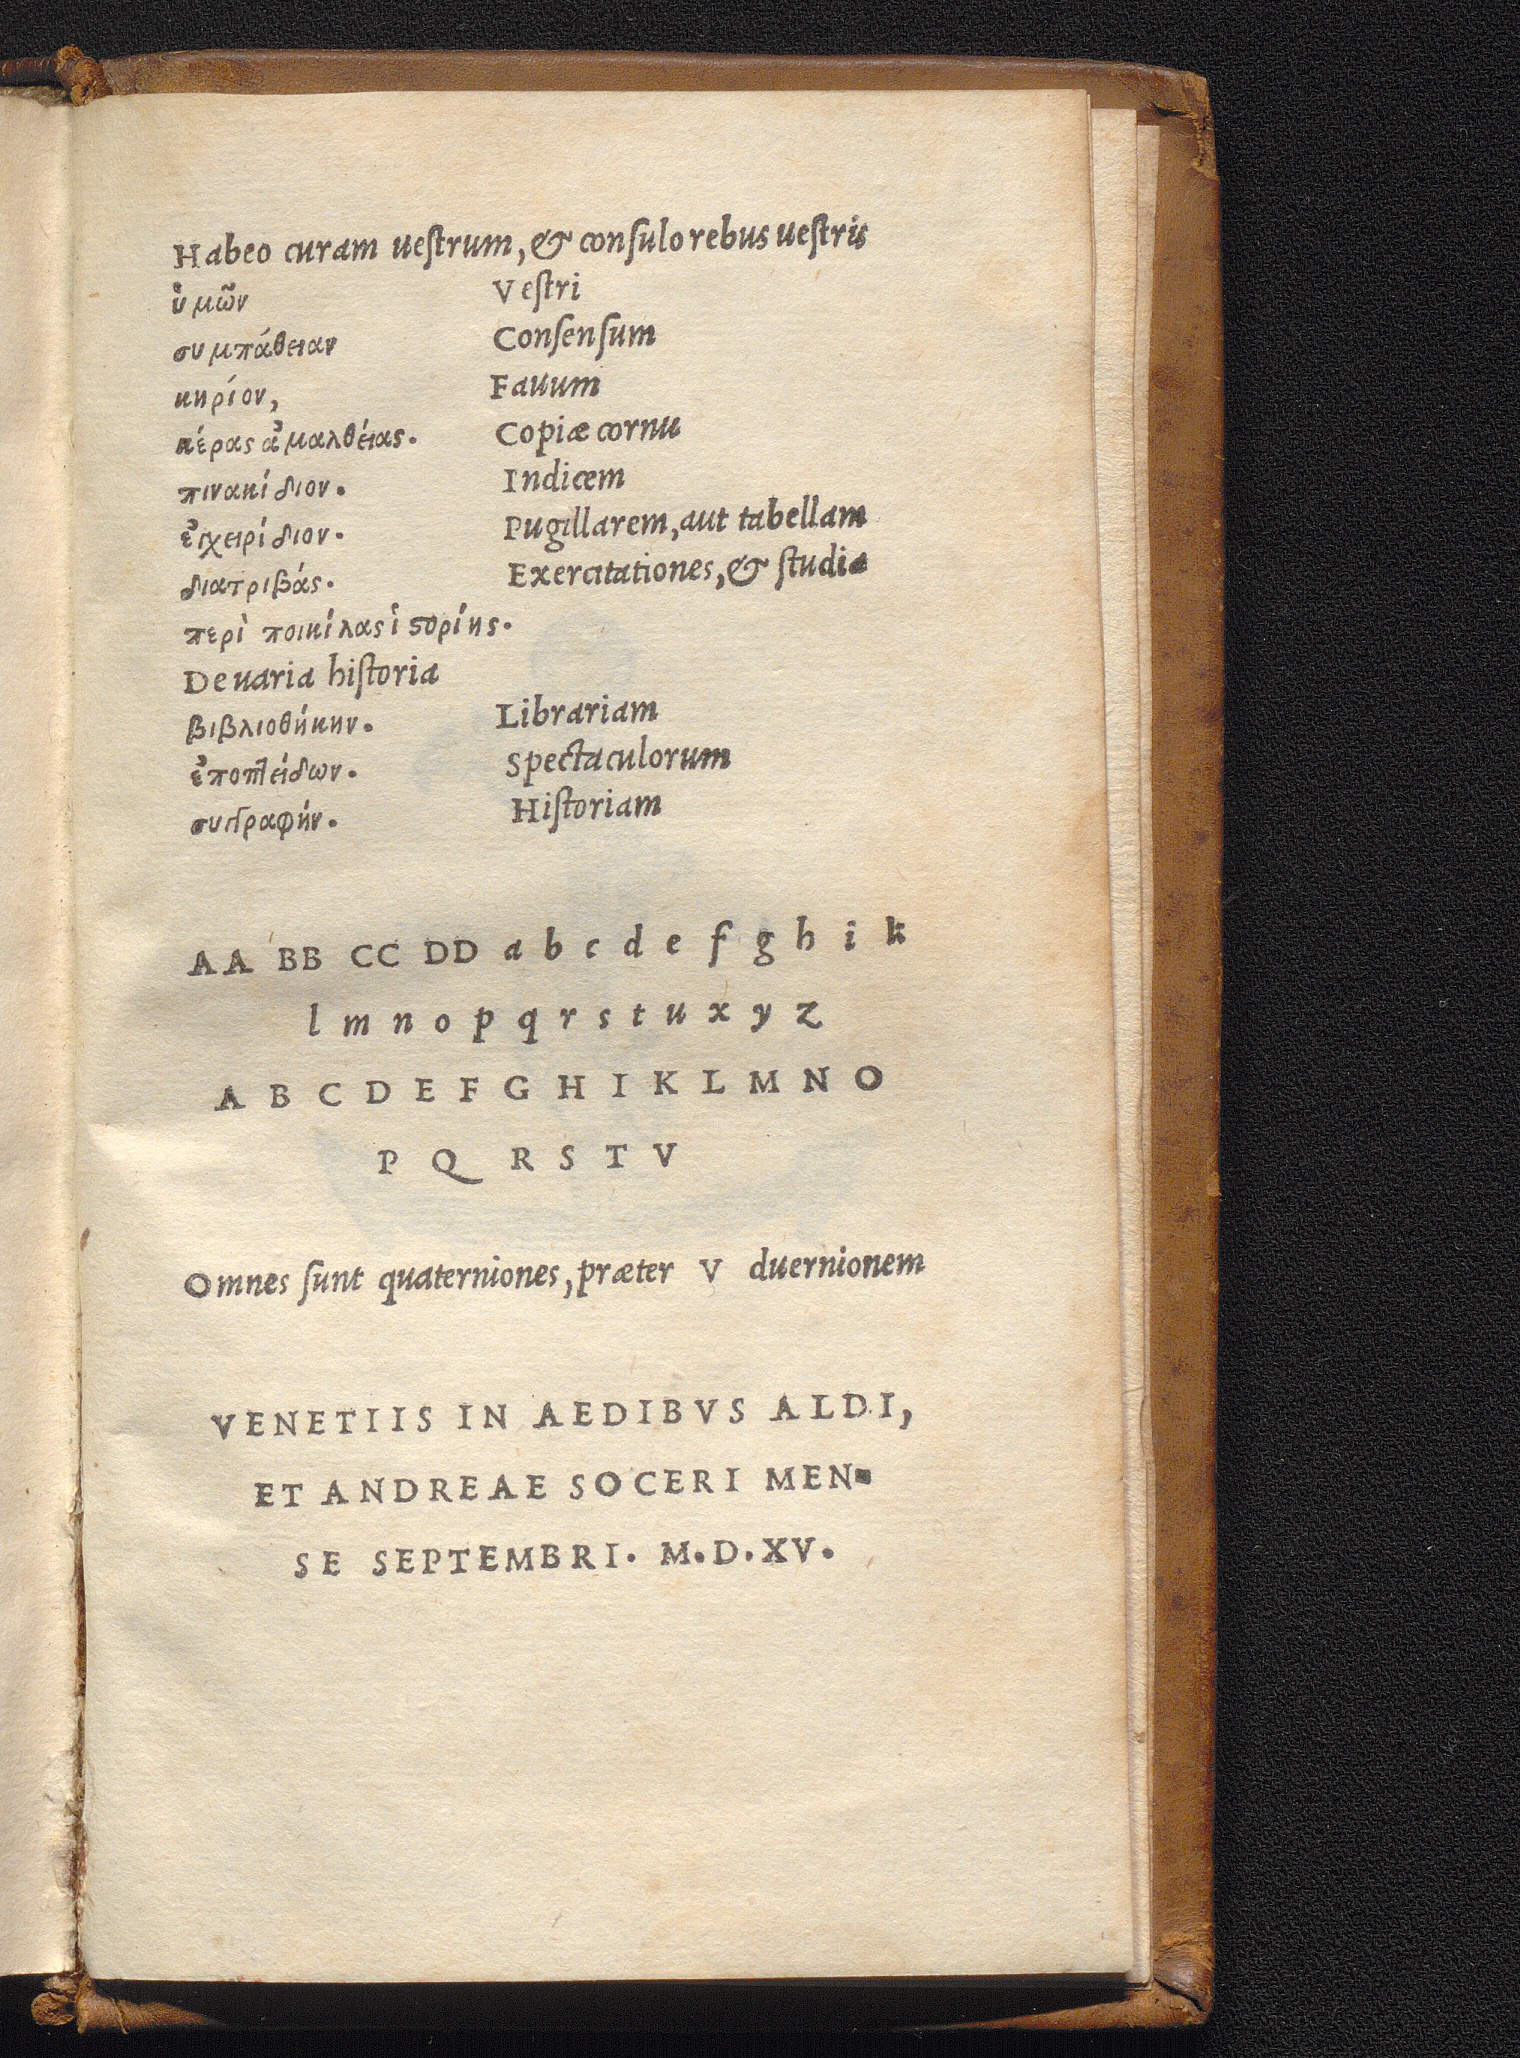 Habeo curam uestrum, & consulo rebus uestris
ὑμῶν Vestri
συμπάθειαν Consensum
κηρίον, Fauum
κέρας ἀμαλθείας. Copiæ cornu
πινακίδιον. Indicem
ἐγχειρίδιον. Pugillarem, aut tabellam
διατριβάς. Exercitationes, & studia
περὶ ποικίλας ἱστορίης.
De uaria historia
βιβλιοθήκην. Librariam
ἐποπτείδων. Spectaculorum
συγγραφήν. Historiam
AA BB CC DD a b c d e f g h i k
l m n o p q r s t u x y z
A B C D E F G H I K L M N O
P Q R S T V
Omnes sunt quaterniones, præter V duernionem
VENETIIS IN AEDIBVS ALDI,
ET ANDREAE SOCERI MEN-
SE SEPTEMBRI. M.D.XV.